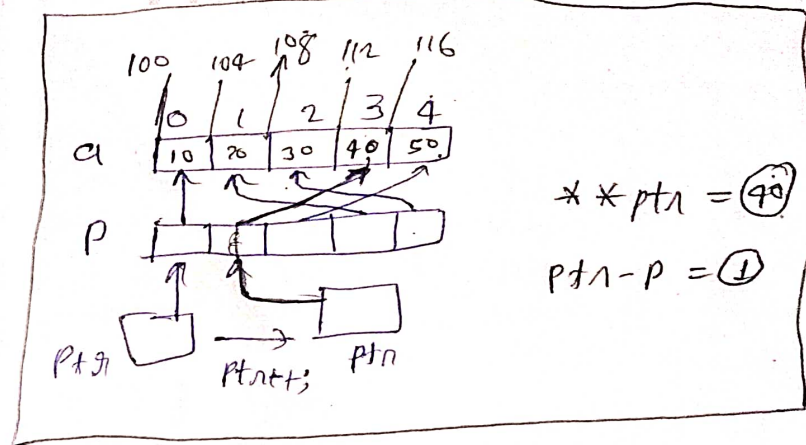 100 104 108 112 116
0 1 2 3 4
a 10 20 30 40 50
**ptr = 40
P
ptr-P = 1
Ptr ptr++; ptr